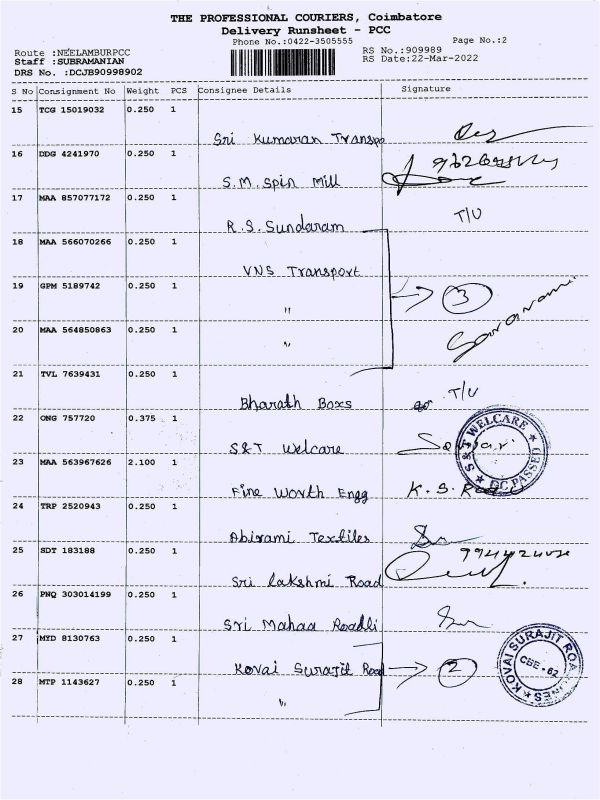 THE PROFESSIONAL COURIERS, Coimbatore
Delivery Runsheet - PCC
Phone No.:0422-3505555
Page No.:2
Route :NEELAMBURPCC
RS No.:909989
Staff :SUBRAMANIAN
RS Date:22-Mar-2022
DRS No. :DCJB90998902
S No Consignment No Weight PCS Consignee Details Signature
15 TCG 15019032 0.250 1
Sri Kumaran Transpo
16 DDG 4241970 0.250 1
S.M. Spin Mill
17 MAA 857077172 0.250 1
R.S. Sundaram T/U
18 MAA 566070266 0.250 1
VNS Transport
19 GPM 5189742 0.250 1
" 3
20 MAA 564850863 0.250 1
" Saravanan
21 TVL 7639431 0.250 1
Bharath Boxs T/U
22 ONG 757720 0.375 1
S&T Welcare
S & T WELCARE
DC PASSED
23 MAA 563967626 2.100 1
Fine Worth Engg K.S.
24 TRP 2520943 0.250 1
Abirami Textiles
25 SDT 183188 0.250 1
Sri Lakshmi Road
26 PNQ 303014199 0.250 1
Sri Mahaa Roadli
27 MYD 8130763 0.250 1
Kovai Surajit Road 2
KOVAI SURAJIT ROADLINES
CBE - 62
28 MTP 1143627 0.250 1
"